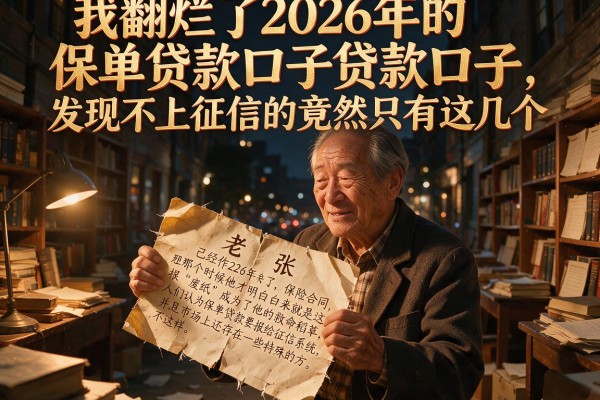 我翻烂了2026年的
保单贷款口子贷款口子,
发现不上征信的竟然只有这几个
老 张
己经作226年乡了,保险合同
短那个时候他才明白白来就是这
报,“废纸”成为了他的救命稻草
人们认为保单贷款要报给征信系统,
并且市场上还存在一些特殊的方。
不这样。